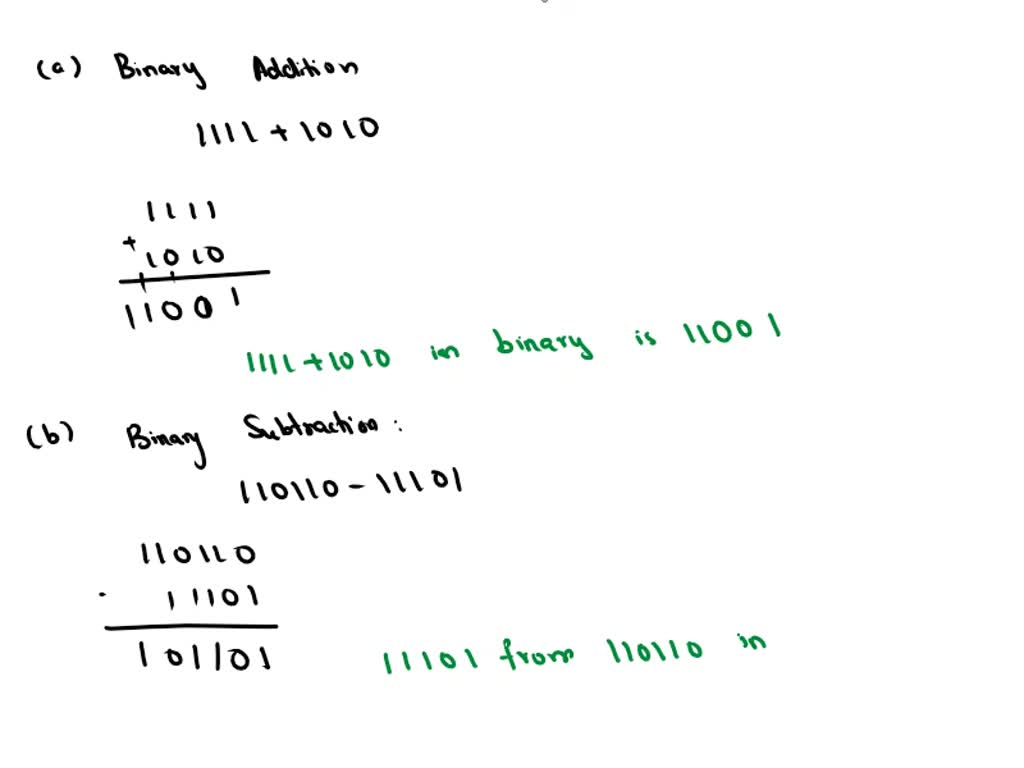 (a) Binary Addition
1111 + 1010
1111
+ 1010
11001
1111 + 1010 in binary is 11001
(b) Binary Subtraction:
110110 - 11101
110110
- 11101
101101
11101 from 110110 in